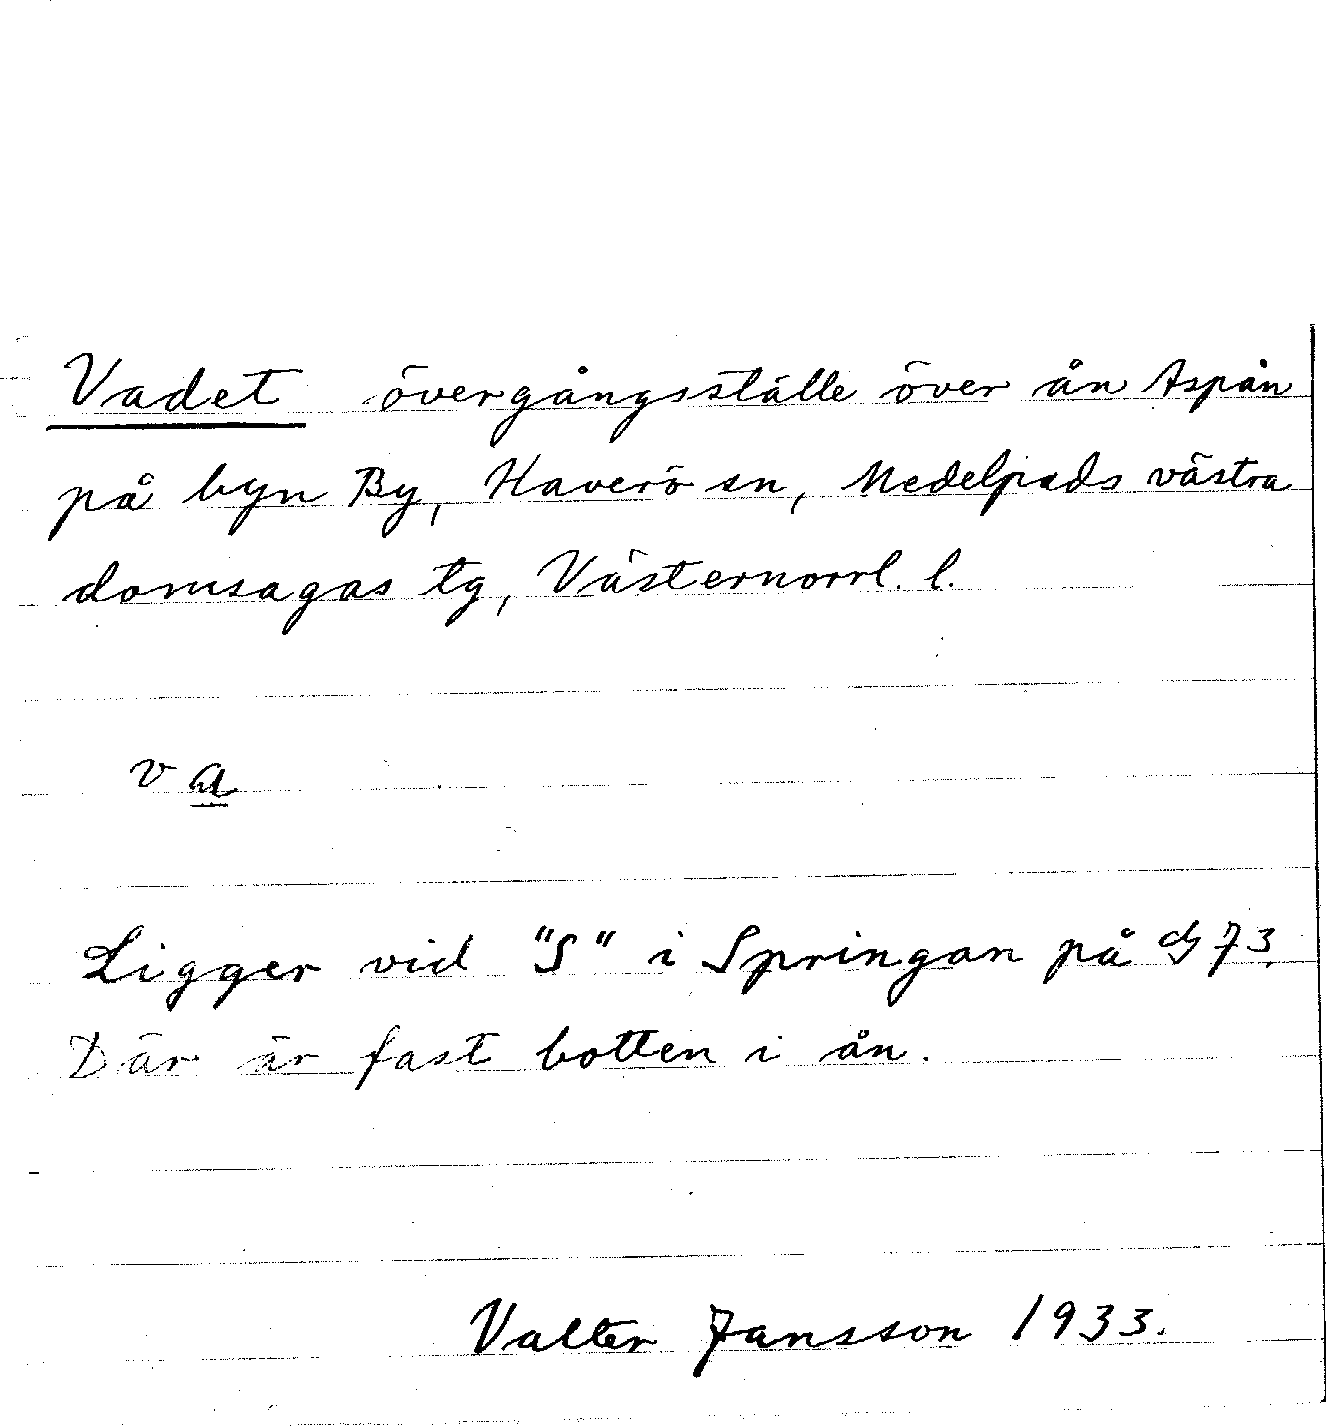 Vadet övergångsställe över ån Aspån
på byn By, Haverö sn, Medelpads västra
domsagas tg, Västernorrl. l.
va
Ligger vid "S" i Springan på 73.
Där är fast botten i ån.
Valter Jansson 1933.